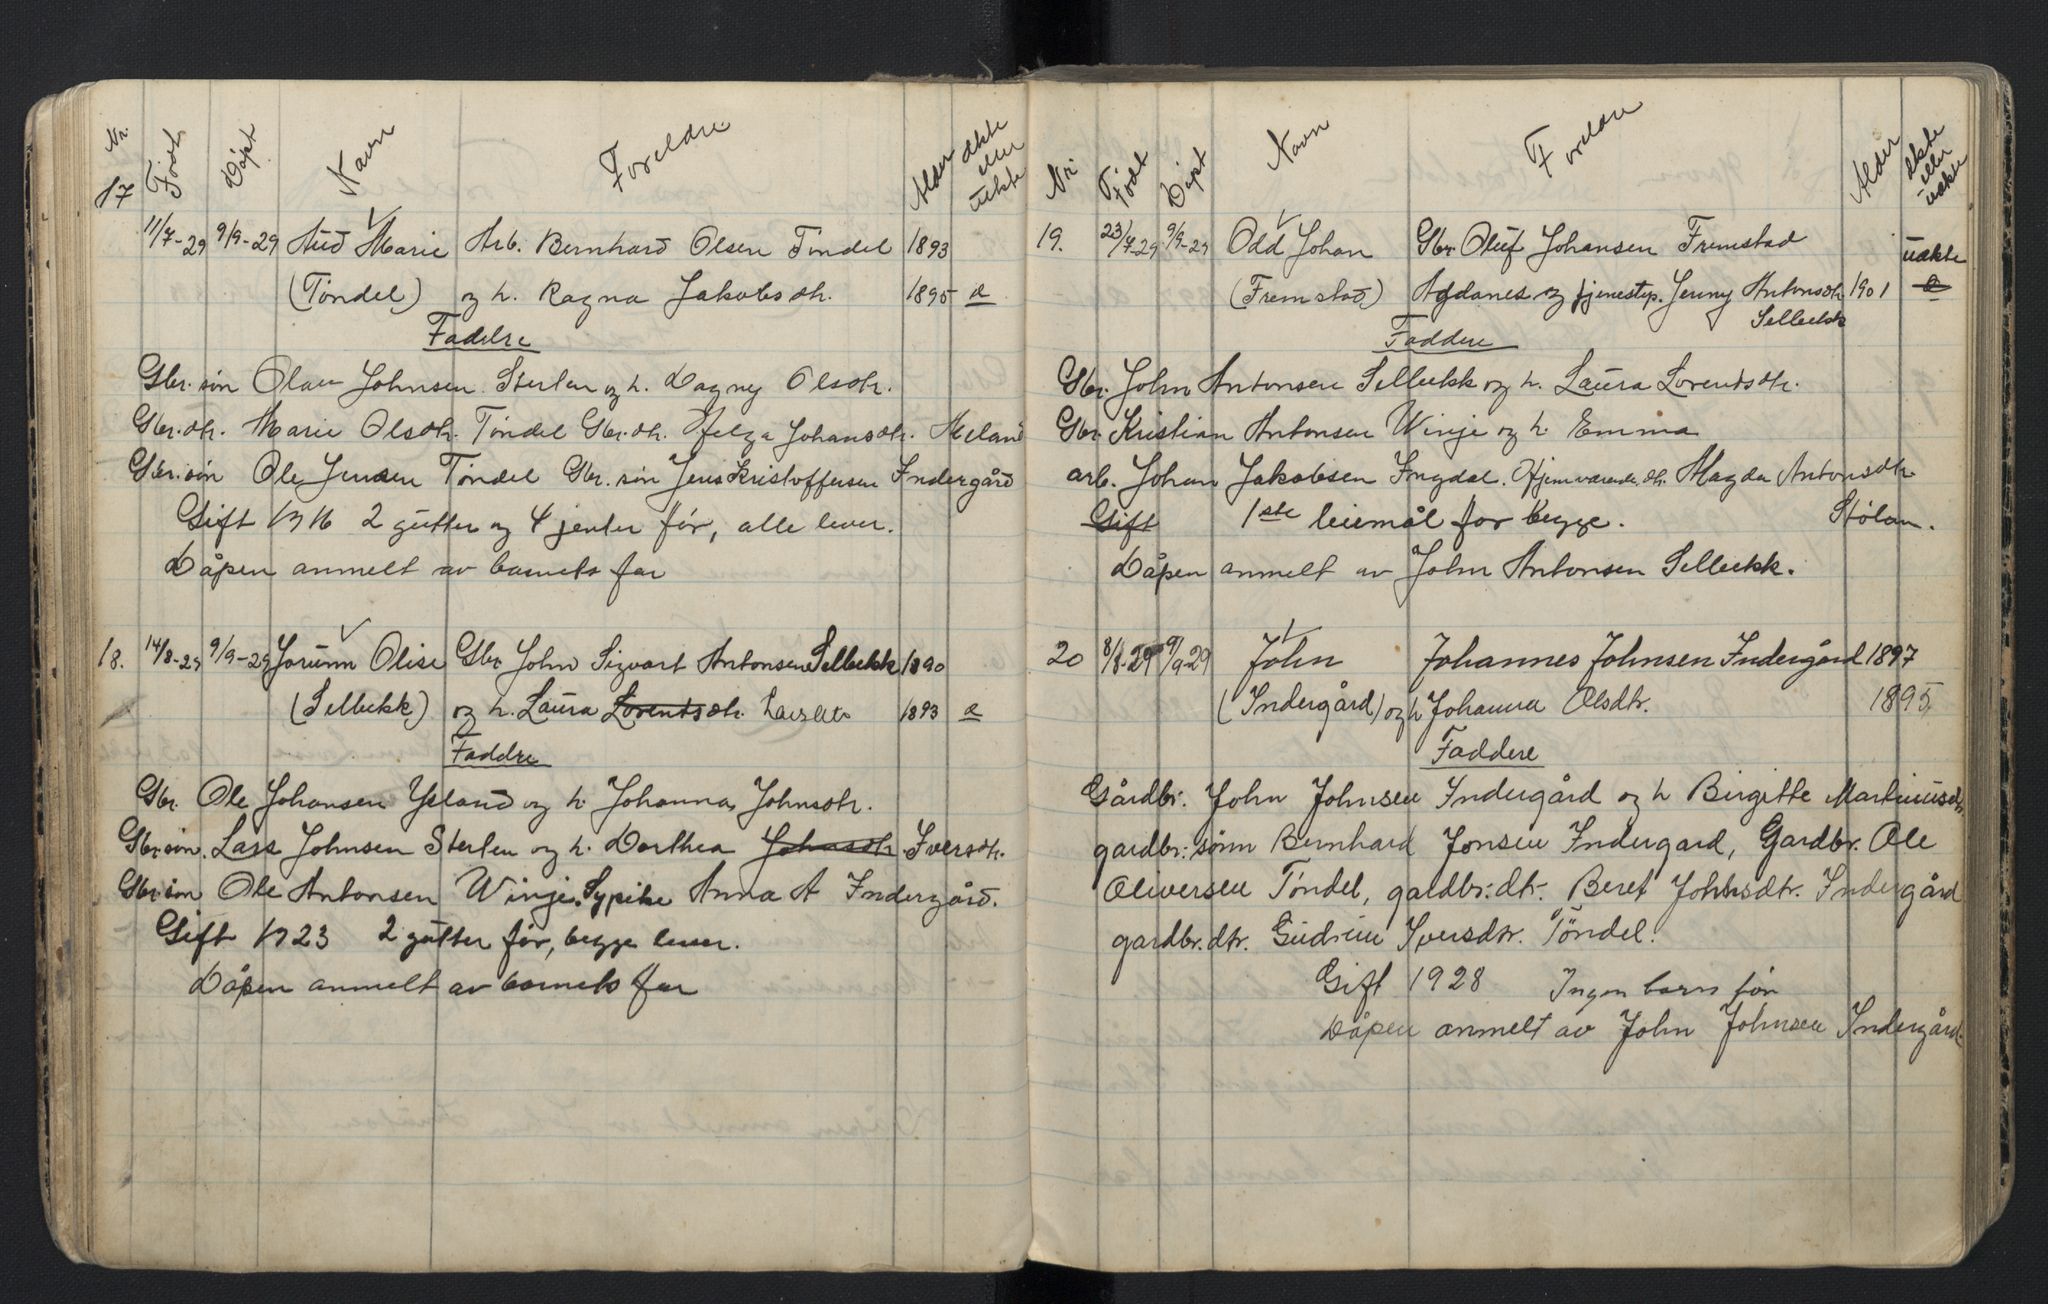 Nr. Født Døpt Navn Foreldre Alder ekte eller uekte
17
11/7-29 9/9-29 Aud Marie Arb. Bernhard Olsen Tøndel 1893
(Tøndel) og h. Ragna Jakobsdtr. 1895 e
Fadelre
Gbr. søn Olav Johnsen Sterten og h. Dagny Olsdtr.
Gbr.dtr. Marie Olsdtr. Tøndel Gbr.dtr. Helga Johansdtr. Meland
Gbr.søn Ole Jensen Tøndel Gbr. søn Jens Kristoffersen Indergård
Gift 1916 2 gutter og 4 jenter før, alle lever.
Dåpen anmelt av barnets far
18. 14/8-29 9/9-29 Jorunn Olise Gbr John Sigvart Antonsen Selbekk 1890
(Selbekk) og h. Laura Lorentsdtr. 1893 e
Faddre
Gbr. Ole Johansen Ysland og h. Johanna Johnsdtr.
Gbr.søn. Lars Johnsen Sterten og h. Dorthea Johnsdtr. Iversdtr.
Gbr søn Ole Antonsen Winje. Sypike Anna A Indergård.
Gift 1923 2 gutter før, begge lever.
Dåpen anmelt av barnets far
Nr Født Døpt Navn Foreldre Alder ekte eller uekte
19. 23/7-29 9/9-29 Odd Johan Gbr Oluf Johansen Fremstad uekte
(Fremstad) Agdanes og tjenestp. Jenny Antonsdtr 1901 e
Selbekk
Faddere
Gbr. John Antonsen Selbekk og h. Laura Lorentsdtr.
Gbr Kristian Antonsen Winje og h. Emma
arb. Johan Jakobsen Ingdal. Hjemværende dtr. Magda Antonsdtr
Gift 1ste leiermål for begge. Stølan.
Dåpen anmelt av John Antonsen Selbekk.
20 8/8-29 9/9-29 John Johannes Johnsen Indergård 1897
(Indergård) og h Johanna Olsdtr. 1895
Faddere
Gårdbr. John Johnsen Indergård og h Birgitte Martinusdtr.
gardbr: sønn Bernhard Jonsen Indergard, Gardbr. Ole
Oliversen Tøndel, gardbr:dtr. Beret Johnsdtr. Indergård
gardbr.dtr. Gudrun Iversdtr. Tøndel.
Gift 1928 Ingen barn før
Dåpen anmelt av John Johnsen Indergård.